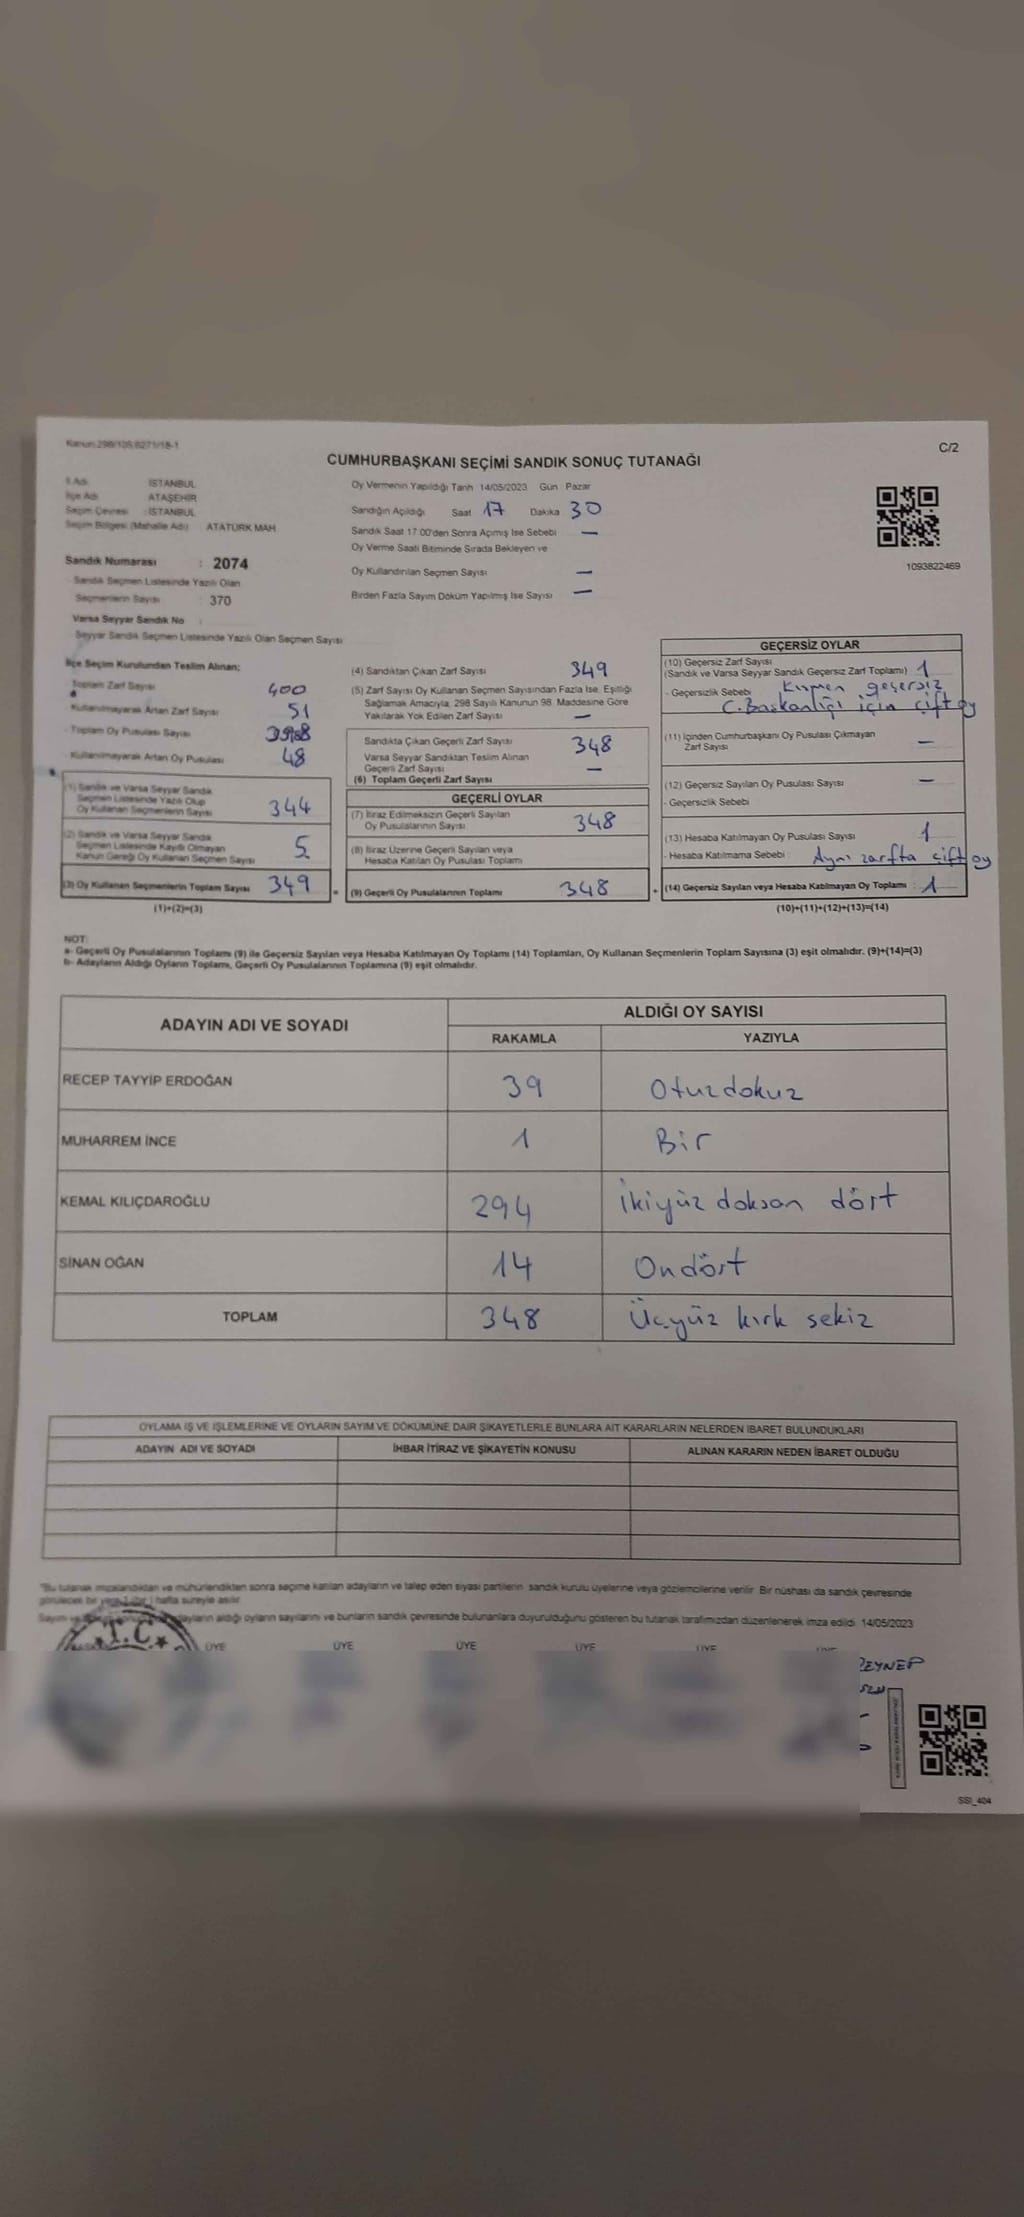 Kanun:298/105,6271/18-1
C/2
CUMHURBAŞKANI SEÇİMİ SANDIK SONUÇ TUTANAĞI
İl Adı : İSTANBUL
İlçe Adı : ATAŞEHİR
Seçim Çevresi : İSTANBUL
Seçim Bölgesi (Mahalle Adı) : ATATÜRK MAH.
Sandık Numarası : 2074
Sandık Seçmen Listesinde Yazılı Olan
Seçmenlerin Sayısı : 370
Varsa Seyyar Sandık No :
Seyyar Sandık Seçmen Listesinde Yazılı Olan Seçmen Sayısı
Oy Vermenin Yapıldığı Tarih 14/05/2023 Gün Pazar
Sandığın Açıldığı Saat 17 Dakika 30
Sandık Saat 17:00'den Sonra Açımış İse Sebebi —
Oy Verme Saati Bitiminde Sırada Bekleyen ve
Oy Kullandırılan Seçmen Sayısı —
Birden Fazla Sayım Döküm Yapılmış İse Sayısı —
1093822469
İlçe Seçim Kurulundan Teslim Alınan;
Toplam Zarf Sayısı 400
Kullanılmayarak Artan Zarf Sayısı 51
Toplam Oy Pusulası Sayısı
Kullanılmayarak Artan Oy Pusulası 48
(1) Sandık ve Varsa Seyyar Sandık
Seçmen Listesinde Yazılı Olup
Oy Kullanan Seçmenlerin Sayısı 344
(2) Sandık ve Varsa Seyyar Sandık
Seçmen Listesinde Kayıtlı Olmayan
Kanun Gereği Oy Kullanan Seçmen Sayısı 5
(3) Oy Kullanan Seçmenlerin Toplam Sayısı 349 =
(1)+(2)=(3)
(4) Sandıktan Çıkan Zarf Sayısı 349
(5) Zarf Sayısı Oy Kullanan Seçmen Sayısından Fazla İse, Eşitliği
Sağlamak Amacıyla, 298 Sayılı Kanunun 98. Maddesine Göre
Yakılarak Yok Edilen Zarf Sayısı —
Sandıkta Çıkan Geçerli Zarf Sayısı 348
Varsa Seyyar Sandıktan Teslim Alınan
Geçerli Zarf Sayısı —
(6) Toplam Geçerli Zarf Sayısı
GEÇERLİ OYLAR
(7) İtiraz Edilmeksizin Geçerli Sayılan
Oy Pusulalarının Sayısı 348
(8) İtiraz Üzerine Geçerli Sayılan veya
Hesaba Katılan Oy Pusulası Toplamı
(9) Geçerli Oy Pusulalarının Toplamı 348 +
GEÇERSİZ OYLAR
(10) Geçersiz Zarf Sayısı
(Sandık ve Varsa Seyyar Sandık Geçersiz Zarf Toplamı) 1
- Geçersizlik Sebebi Kısmen geçersiz
C.Başkanlığı için çift oy
(11) İçinden Cumhurbaşkanı Oy Pusulası Çıkmayan
Zarf Sayısı —
(12) Geçersiz Sayılan Oy Pusulası Sayısı —
- Geçersizlik Sebebi
(13) Hesaba Katılmayan Oy Pusulası Sayısı 1
- Hesaba Katılmama Sebebi : Aynı zarfta çift oy
(14) Geçersiz Sayılan veya Hesaba Katılmayan Oy Toplamı : 1
(10)+(11)+(12)+(13)=(14)
NOT:
a- Geçerli Oy Pusulalarının Toplamı (9) ile Geçersiz Sayılan veya Hesaba Katılmayan Oy Toplamı (14) Toplamları, Oy Kullanan Seçmenlerin Toplam Sayısına (3) eşit olmalıdır. (9)+(14)=(3)
b- Adayların Aldığı Oyların Toplamı, Geçerli Oy Pusulalarının Toplamına (9) eşit olmalıdır.
ADAYIN ADI VE SOYADI
ALDIĞI OY SAYISI
RAKAMLA YAZIYLA
RECEP TAYYİP ERDOĞAN 39 Otuzdokuz
MUHARREM İNCE 1 Bir
KEMAL KILIÇDAROĞLU 294 İkiyüz doksan dört
SİNAN OĞAN 14 Ondört
TOPLAM 348 Üçyüz kırk sekiz
OYLAMA İŞ VE İŞLEMLERİNE VE OYLARIN SAYIM VE DÖKÜMÜNE DAİR ŞİKAYETLERLE BUNLARA AİT KARARLARIN NELERDEN İBARET BULUNDUKLARI
ADAYIN ADI VE SOYADI İHBAR İTİRAZ VE ŞİKAYETİN KONUSU ALINAN KARARIN NEDEN İBARET OLDUĞU
"Bu tutanak imzalandıktan ve mühürlendikten sonra seçime katılan adayların ve talep eden siyasi partilerin sandık kurulu üyelerine veya gözlemcilerine verilir. Bir nüshası da sandık çevresinde
görülecek bir yere 1 (bir) hafta süreyle asılır.
Sayım ve adayların aldığı oyların sayılarını ve bunların sandık çevresinde bulunanlara duyurulduğunu gösteren bu tutanak tarafımızdan düzenlenerek imza edildi. 14/05/2023
T.C.
ÜYE ÜYE ÜYE ÜYE ÜYE
ZEYNEP
SSI_404